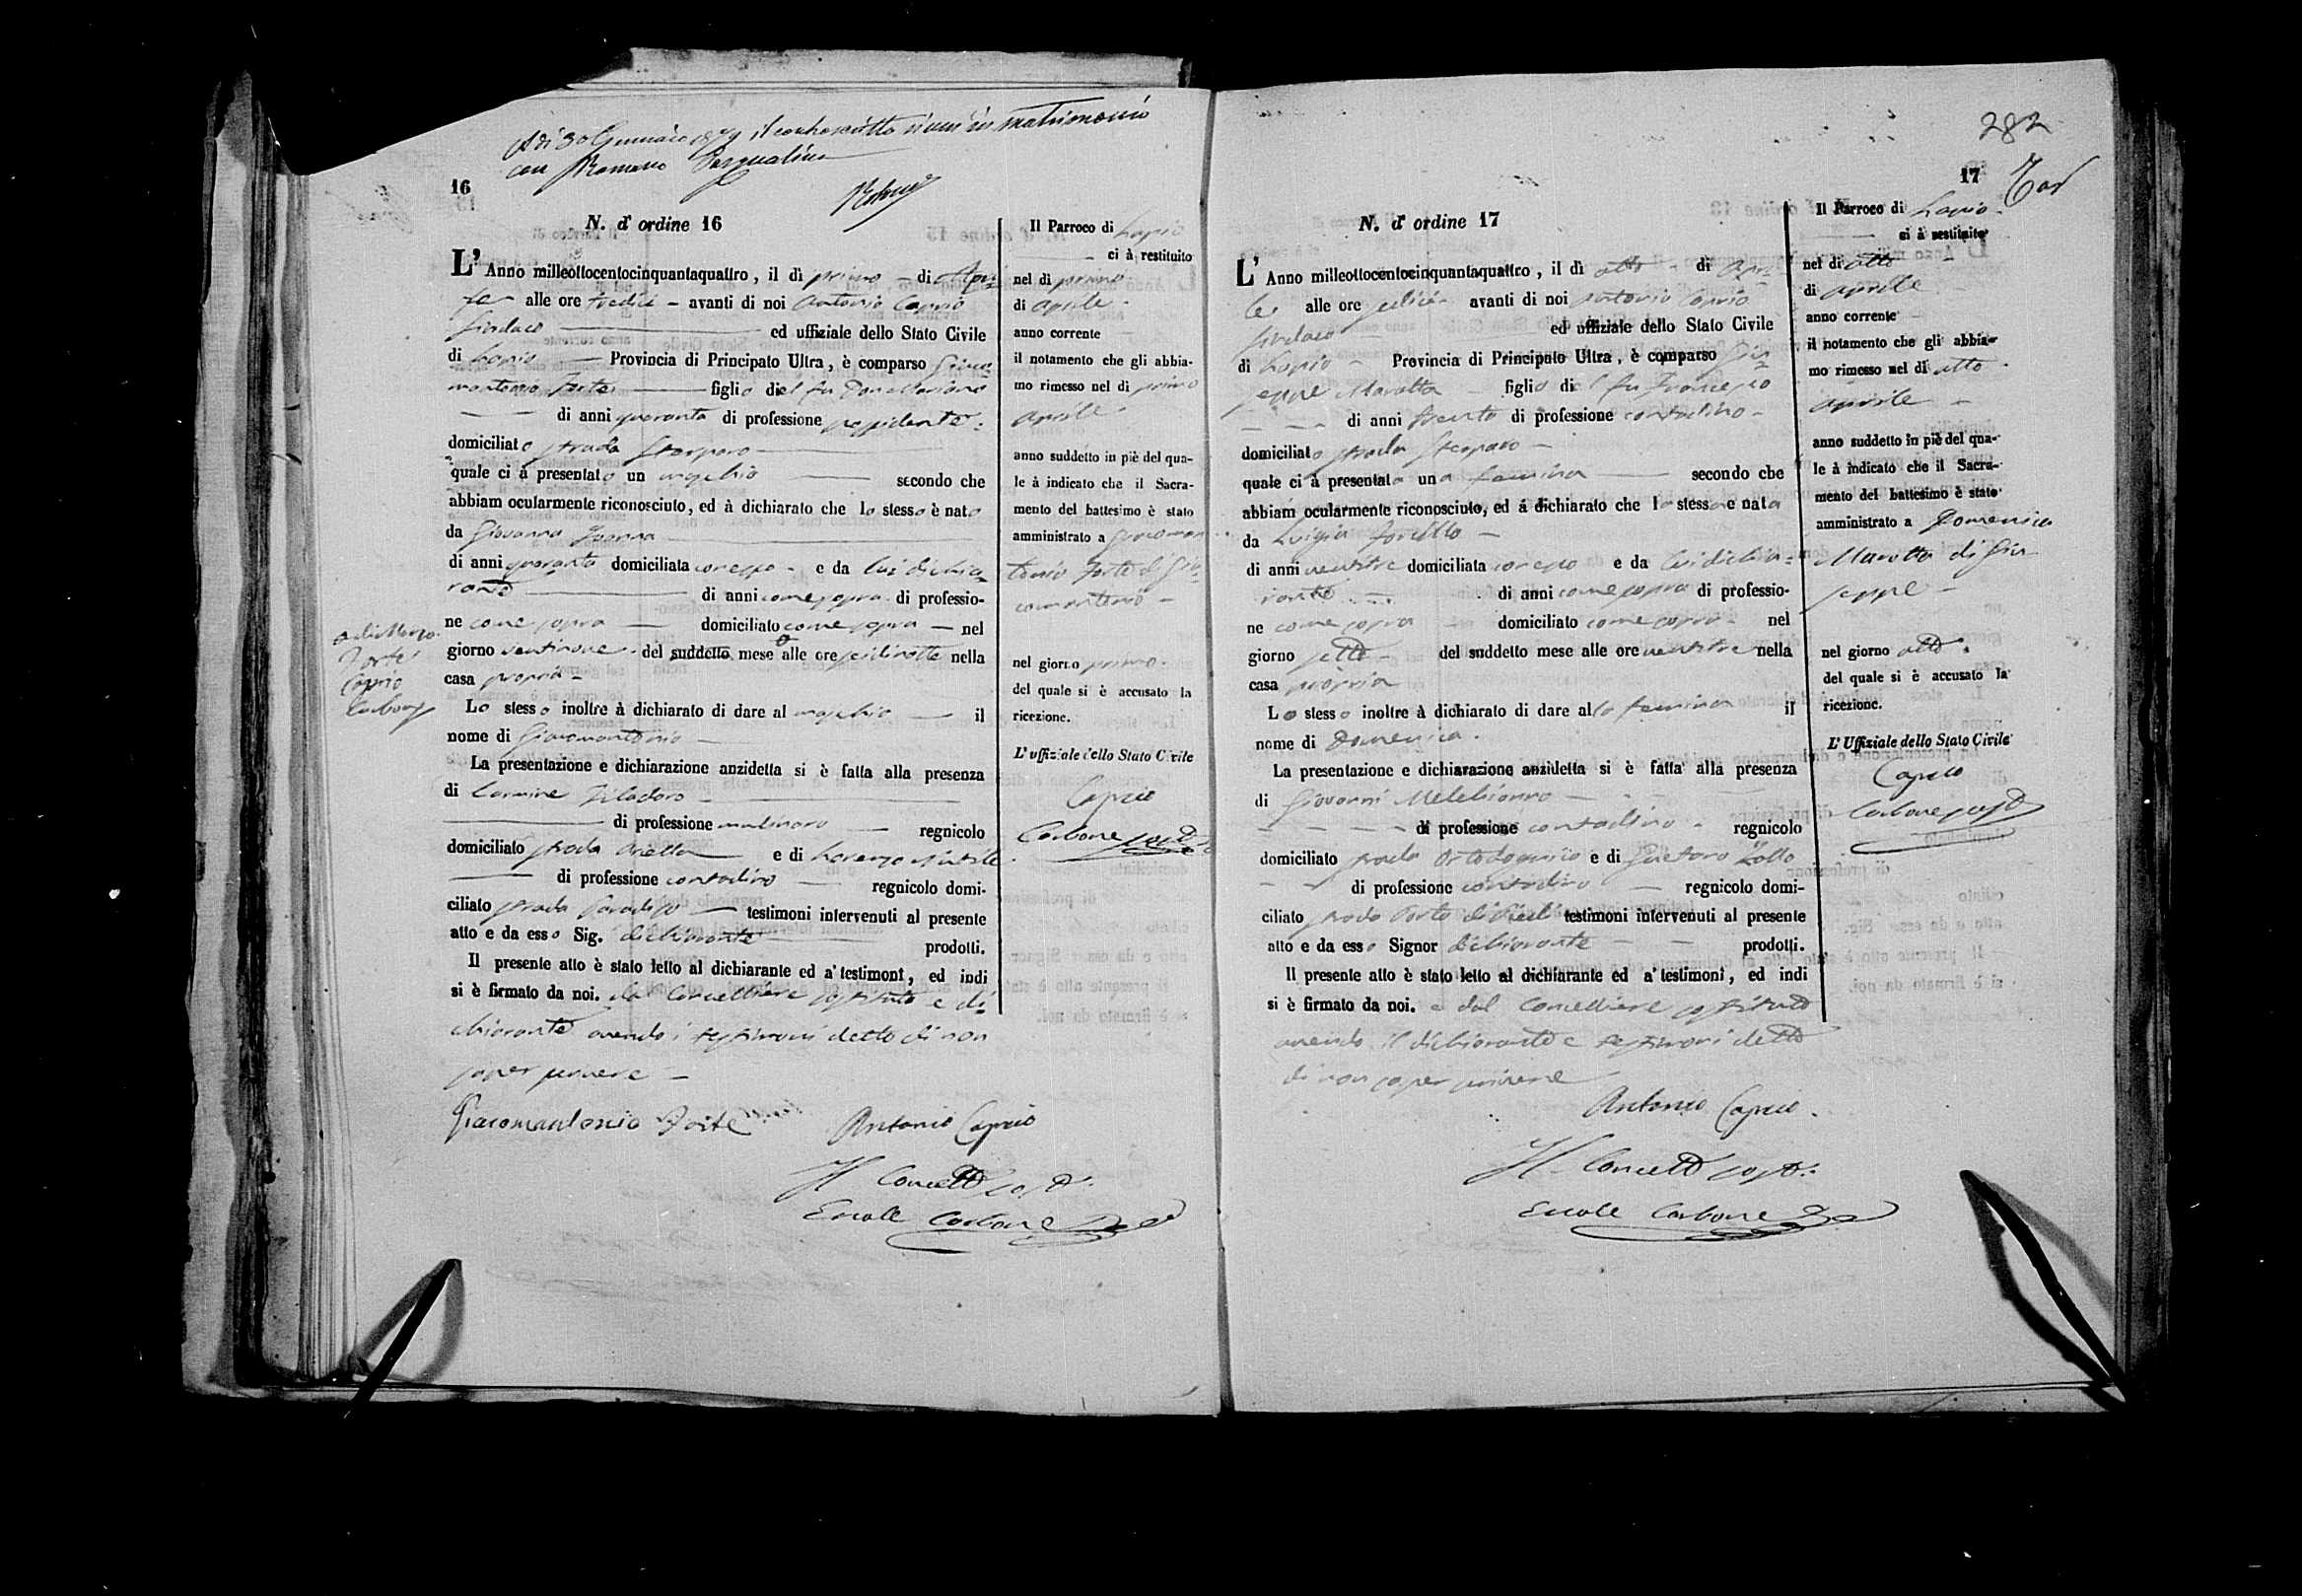 A dì 30 Gennaio 1879 il controscritto si unì in matrimonio
con Romano Pasqualina
16
N. d' ordine 16
L' Anno milleottocentocinquantaquattro, il dì primo di Apri-
le alle ore tredici avanti di noi Antonio Caprio
Sindaco ed uffiziale dello Stato Civile
di Lapio Provincia di Principato Ultra, è comparso Giaco-
mantonio Forte figlio del fu Don Mariano
di anni quaranta di professione possidente
domiciliato strada
quale ci à presentato un maschio secondo che
abbiam ocularmente riconosciuto, ed à dichiarato che lo stesso è nato
da Giovanna
di anni quaranta domiciliata con esso e da lui dichia-
rante di anni come sopra di professio-
ne come sopra domiciliato come sopra nel
giorno ventinove del suddetto mese alle ore diciotto nella
casa propria
Lo stesso inoltre à dichiarato di dare al maschio il
nome di Giacomantonio
La presentazione e dichiarazione anzidetta si è fatta alla presenza
di Carmine Filadoro
di professione mulinaro regnicolo
domiciliato strada e di Lorenzo
di professione contadino regnicolo domi-
ciliato strada testimoni intervenuti al presente
atto e da esso Sig. dichiarante prodotti.
Il presente atto è stato letto al dichiarante ed a' testimoni, ed indi
si è firmato da noi. dal Cancelliere sostituto e di-
chiarante avendo i testimoni detto di non
saper scrivere
Giacomantonio Forte Antonio Caprio
Il Cancell. sost.
Ercole Carbone
di Marzo
Forte
Caprio
Carbone
Il Parroco di Lapio
ci à restituito
nel dì primo
di Aprile
anno corrente
il notamento che gli abbia-
mo rimesso nel dì primo
Aprile
anno suddetto in piè del qua-
le à indicato che il Sacra-
mento del battesimo è stato
amministrato a Giacoman-
tonio Forte di Gia-
comantonio
nel giorno primo
del quale si è accusato la
ricezione.
L' uffiziale dello Stato Civile
Caprio
Carbone sost.
282
17
N. d' ordine 17
L' Anno milleottocentocinquantaquattro, il dì otto di Apri-
le alle ore sedici avanti di noi Antonio Caprio
Sindaco ed uffiziale dello Stato Civile
di Lapio Provincia di Principato Ultra, è comparso Giu-
seppe Marotta figlio del fu Francesco
di anni trenta di professione contadino
domiciliato strada
quale ci à presentato una femina secondo che
abbiam ocularmente riconosciuto, ed à dichiarato che la stessa e nata
da Luigia
di anni ventitre domiciliata con esso e da lui dichia-
rante di anni come sopra di professio-
ne come sopra domiciliato come sopra nel
giorno sette del suddetto mese alle ore ventitre nella
casa propria
Lo stesso inoltre à dichiarato di dare alla femina il
nome di Domenica.
La presentazione e dichiarazione anzidetta si è fatta alla presenza
di Giovanni Melchionno
di professione contadino regnicolo
domiciliato strada e di Gaetano Zollo
di professione contadino regnicolo domi-
ciliato strada testimoni intervenuti al presente
atto e da esso Signor dichiarante prodotti.
Il presente atto è stato letto al dichiarante ed a' testimoni, ed indi
si è firmato da noi. e dal Cancelliere sostituto
avendo il dichiarante e testimoni detto
di non saper scrivere
Antonio Caprio.
Il Cancell. sost.
Ercole Carbone
Il Parroco di Lapio
ci à restituito
nel dì otto
di Aprile
anno corrente
il notamento che gli abbia-
mo rimesso nel dì otto
Aprile
anno suddetto in piè del qua-
le à indicato che il Sacra-
mento del battesimo è stato
amministrato a Domenica
Marotta di Giu-
seppe
nel giorno otto
del quale si è accusato la
ricezione.
L' Uffiziale dello Stato Civile
Caprio
Carbone sost.